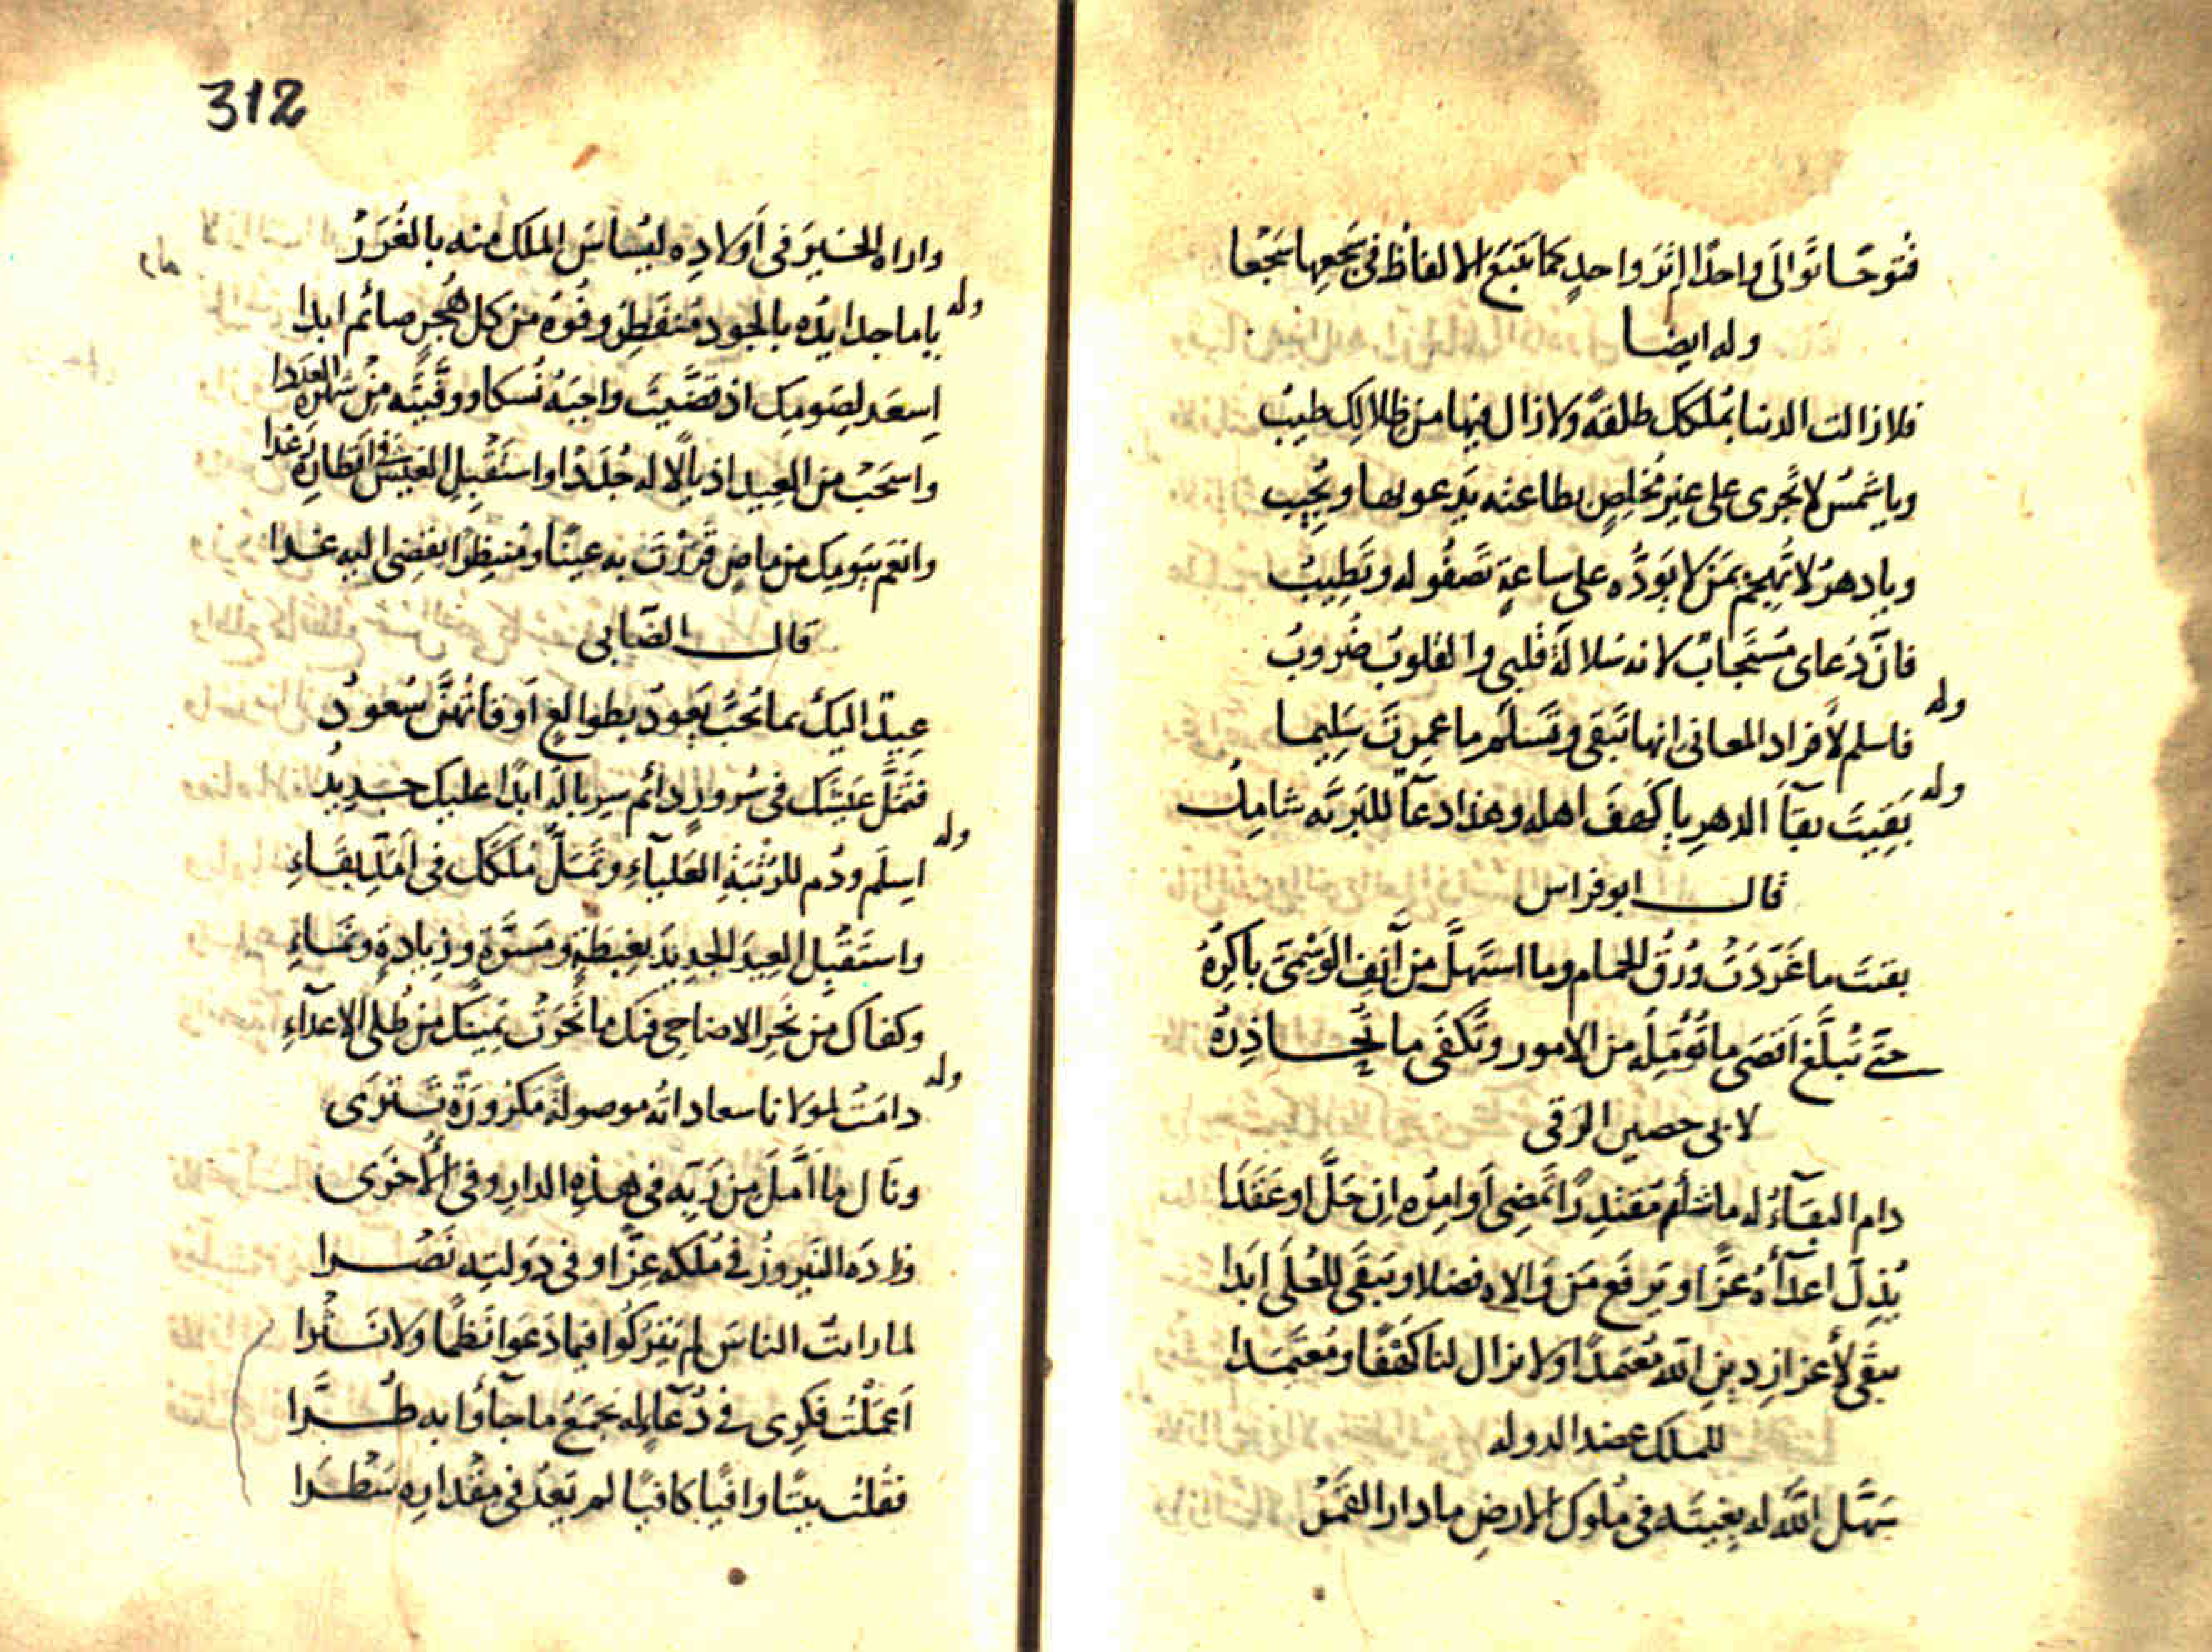 فتوحًا توالى واحدًا إثر واحدٍ كما تتبع الالفاظ في سجعها سجعا
وله ايضا
فلا زالت الدنيا بملكك طلقةً ولا زال فيها من ظلالك طيبُ
ويا شمسُ لا تجرى على غير مخلِصٍ بطاعته يدعو بها ويُجيب
ويا دهرُ لا تهجم بمن لا يودّه على ساعةٍ تصفُو له وتطيبُ
فانّ دُعاى مُستجابٌ لانه سُلالة قلبى والقلوبُ ضُروبُ
وله
فاسلم لأفراد المعانى انها تبقى وتسلَم ما عمِرتَ سَلِيما
وله
بَقِيتَ بقآءَ الدهرِ يا كهفَ اهله وهذا دعآءٌ للبريّه شامِلُ
قال ابو فراس
بقيتَ ما غَرّدَتْ وُرْقُ الحمام وما استهلّ من آنِفِ الوَسْمىّ باكِرُهُ
حتى تُبلَّغ اَقصَى ما تُؤمّله من الامور وتُكفَى ما تُحاذِرهُ
لابى حصين الرقى
دام البقآءُ له ما شاء مقتدِرًا تمضِى اَوامِرُه اِن حَلَّ او عَقَدَا
يُذِلّ اعدآءُه عزًّا ويرفع مَن وَالاه فضلا ويبقَى للعُلَى ابَدا
يبقى لأعزاز دينِ الله مُعتمدًا ولا يزال لنا كهفًا ومُعتمَدا
للملك عضد الدوله
سَهّل الله له بغيته فى مُلوك الارضِ ما دار القمَرْ
312
واراه الخيرَ فى اَولادِه ليُساسَ الملك منه بالغُرَرْ
وله
يا ماجدا يدُه بالجود مُنفطِرٌ وفُوهُ من كل هُجرٍ صائم ابدا
اِسعَد لصَومِك اذ قضّيتَ واجبَهُ نُسكا ووفّيتَه مِنْ شهرِه العَدَدا
واسحَبْ من العيد اذيالًا له جُدَدًا واستَقْبِل العيشَ فى اِفطارِهْ رَغدا
وانعَم بيومِك من ماضٍ قرَرْتَ به عينًا ومُنتظِرًا يُفضِى اليه غدا
قال الصّابى
عِيدٌ اليكَ بما تُحبّ يَعودُ بطوالعٍ اَوقاتُهنّ سُعودُ
فتَمَلَّ عَيشَك فى سُرورٍ دائم سِربالُه ابدًا عليك جديدُ
وله
اِسلَم ودُم للرُتبَةِ العَليآءِ وتَمَلّ مُلكَك فى اَمَدّ بقَاءِ
واستَقْبِل العِيدَ الجديدَ بغِبطةٍ ومَسرَّةٍ وزيادةٍ ونمَاءِ
وكفاك من نحرِ الاضاحِى فيك ما نحَرَتْ يمينُك من طُلى الاعدآءِ
وله
دامَتْ لمولانا سعاداتُه موصولةً مكرُورَةً تَترَى
ونَال ما اَمّلَ من رَبّه فى هذِه الدارِ وفى الأُخرَى
وزادَه النَيروزُ فى مُلكه عِزًّا وفى دَولتِه نَصْرا
لما رايتُ الناسَ لم يَترُكوا فيما دَعَوا نَظمًا ولا نَثْرا
اَعمَلْتُ فِكرِى فى دُعآءٍ له يجمَعُ ما جآءُوا به طُرَّا
فقلتُ بيتًا وافيًا كافيًا لم يَعدُ فى مِقْدارِه سَطْرا